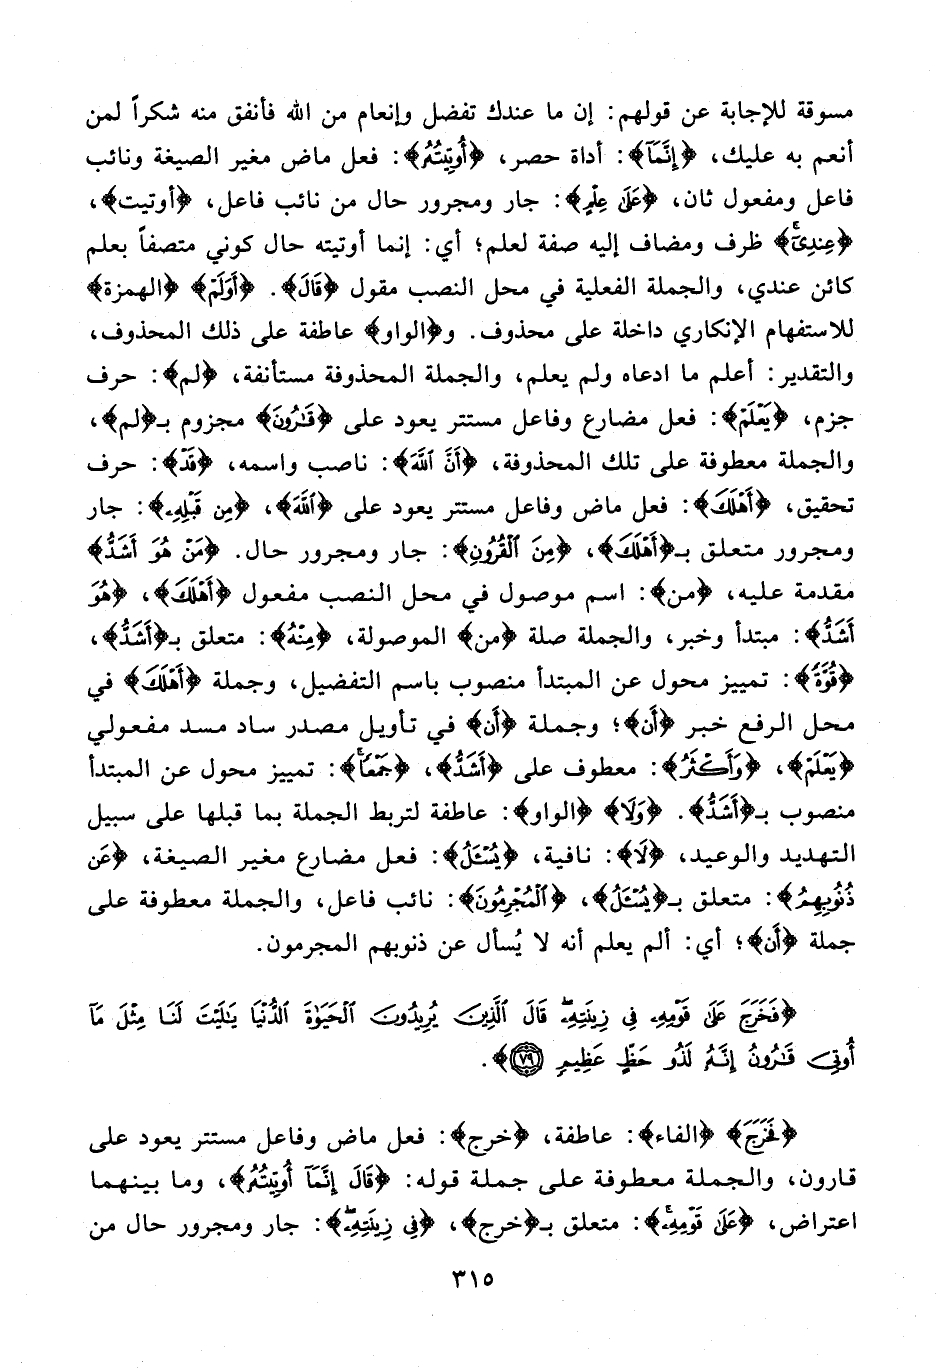 مسوقة للإجابة عن قولهم: إن ما عندك تفضل وإنعام من الله فأنفق منه شكراً لمن
أنعم به عليك، ﴿إِنَّمَآ﴾: أداة حصر، ﴿أُوتِيتُهُ﴾: فعل ماض مغير الصيغة ونائب
فاعل ومفعول ثان، ﴿عَلَىٰ عِلْمٍ﴾: جار ومجرور حال من نائب فاعل، ﴿أوتيت﴾،
﴿عِندِيٓ﴾ ظرف ومضاف إليه صفة لعلم؛ أي: إنما أوتيته حال كوني متصفاً بعلم
كائن عندي، والجملة الفعلية في محل النصب مقول ﴿قَالَ﴾. ﴿أَوَلَمْ﴾ ﴿الهمزة﴾
للاستفهام الإنكاري داخلة على محذوف. و﴿الواو﴾ عاطفة على ذلك المحذوف،
والتقدير: أعلم ما ادعاه ولم يعلم، والجملة المحذوفة مستأنفة، ﴿لم﴾: حرف
جزم، ﴿يَعْلَمْ﴾: فعل مضارع وفاعل مستتر يعود على ﴿قَٰرُونَ﴾ مجزوم بـ﴿لم﴾،
والجملة معطوفة على تلك المحذوفة، ﴿أَنَّ ٱللَّهَ﴾: ناصب واسمه، ﴿قَدْ﴾: حرف
تحقيق، ﴿أَهْلَكَ﴾: فعل ماض وفاعل مستتر يعود على ﴿ٱللَّهَ﴾، ﴿مِن قَبْلِهِۦ﴾: جار
ومجرور متعلق بـ﴿أَهْلَكَ﴾، ﴿مِنَ ٱلْقُرُونِ﴾: جار ومجرور حال. ﴿مَنْ هُوَ أَشَدُّ﴾
مقدمة عليه، ﴿من﴾: اسم موصول في محل النصب مفعول ﴿أَهْلَكَ﴾، ﴿هُوَ
أَشَدُّ﴾: مبتدأ وخبر، والجملة صلة ﴿من﴾ الموصولة، ﴿مِنْهُ﴾: متعلق بـ﴿أَشَدُّ﴾،
﴿قُوَّةً﴾: تمييز محول عن المبتدأ منصوب باسم التفضيل، وجملة ﴿أَهْلَكَ﴾ في
محل الرفع خبر ﴿أَن﴾؛ وجملة ﴿أَن﴾ في تأويل مصدر ساد مسد مفعولي
﴿يَعْلَمْ﴾، ﴿وَأَكْثَرُ﴾: معطوف على ﴿أَشَدُّ﴾، ﴿جَمْعًا﴾: تمييز محول عن المبتدأ
منصوب بـ﴿أَشَدُّ﴾. ﴿وَلَا﴾ ﴿الواو﴾: عاطفة لتربط الجملة بما قبلها على سبيل
التهديد والوعيد، ﴿لَا﴾: نافية، ﴿يُسْـَٔلُ﴾: فعل مضارع مغير الصيغة، ﴿عَن
ذُنُوبِهِمُ﴾: متعلق بـ﴿يُسْـَٔلُ﴾، ﴿ٱلْمُجْرِمُونَ﴾: نائب فاعل، والجملة معطوفة على
جملة ﴿أَن﴾؛ أي: ألم يعلم أنه لا يُسأل عن ذنوبهم المجرمون.
﴿فَخَرَجَ عَلَىٰ قَوْمِهِۦ فِى زِينَتِهِۦ ۖ قَالَ ٱلَّذِينَ يُرِيدُونَ ٱلْحَيَوٰةَ ٱلدُّنْيَا يَٰلَيْتَ لَنَا مِثْلَ مَآ
أُوتِىَ قَٰرُونُ إِنَّهُۥ لَذُو حَظٍّ عَظِيمٍ ﴿٧٩﴾﴾.
﴿فَخَرَجَ﴾ ﴿الفاء﴾: عاطفة، ﴿خرج﴾: فعل ماض وفاعل مستتر يعود على
قارون، والجملة معطوفة على جملة قوله: ﴿قَالَ إِنَّمَآ أُوتِيتُهُۥ﴾، وما بينهما
اعتراض، ﴿عَلَىٰ قَوْمِهِۦ﴾: متعلق بـ﴿خرج﴾، ﴿فِى زِينَتِهِۦ ۖ﴾: جار ومجرور حال من
٣١٥